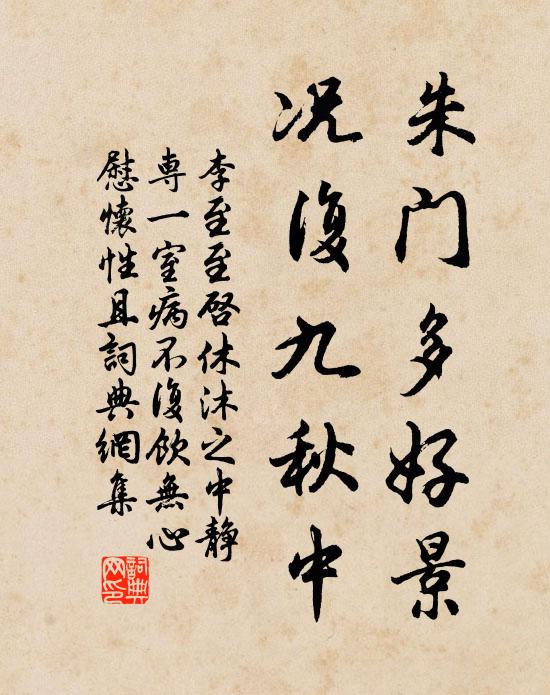 朱门多好景
况復九秋中
李至至啓休沐之中静
専一室病不復飲無心
慰懷性且詞典網集
詞典网印